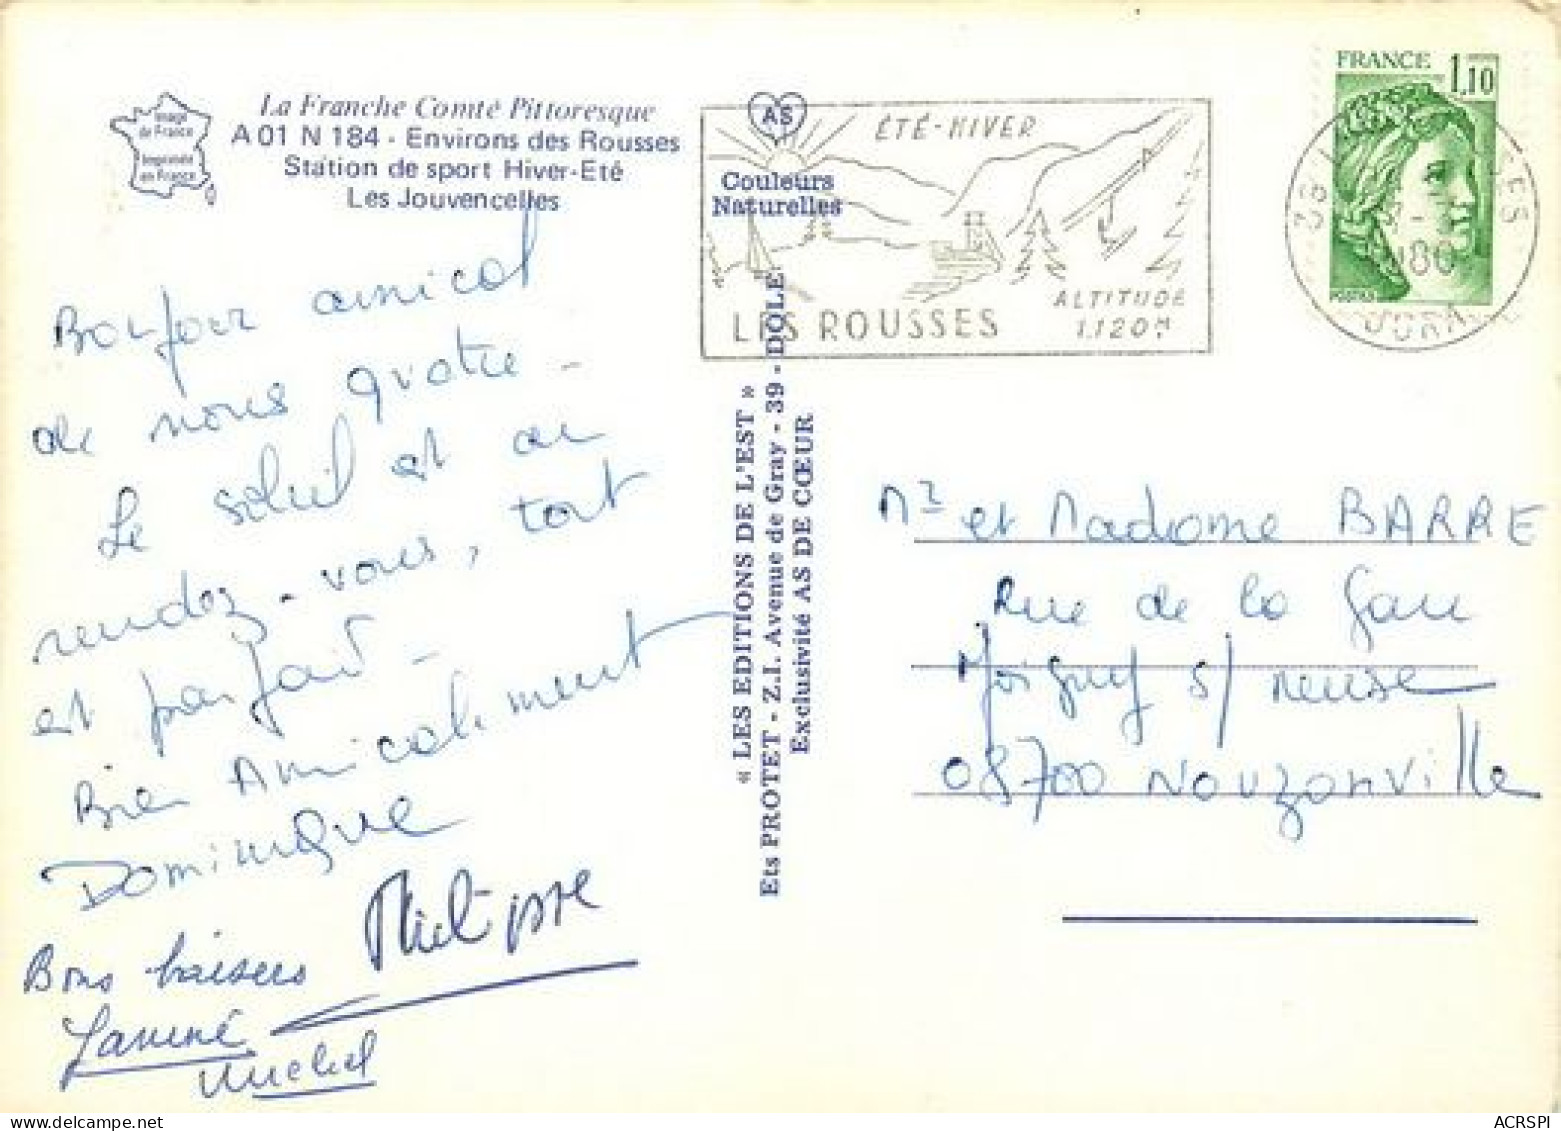 Image
de France
Imprimée
en France
La Franche Comté Pittoresque
A 01 N 184 - Environs des Rousses
Station de sport Hiver-Eté
Les Jouvencelles
AS
Couleurs
Naturelles
ÉTÉ-HIVER
ALTITUDE
1.120 m
LES ROUSSES
FRANCE 1,10
POSTES
JURA
Bonjour amical
de nous quatre -
Le soleil est au
rendez-vous, tout
est parfait -
Bien Amicalement
Dominique
Philippe
Bons baisers
Janine
Michel
« LES EDITIONS DE L'EST »
Ets PROTET - Z.I. Avenue de Gray - 39 - DOLE
Exclusivité AS DE CŒUR
Mr et Madame BARRE
Rue de la Gare
Joigny s/ meuse
08700 Nouzonville
ACRSPI